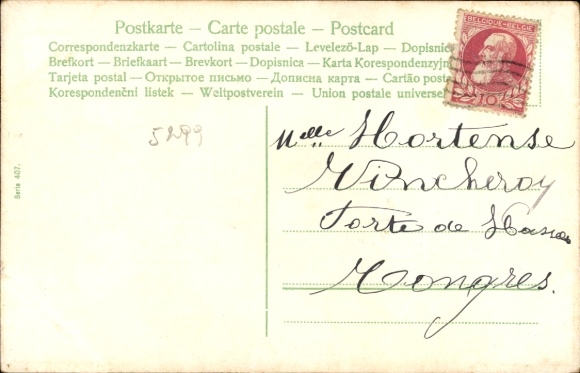 Postkarte — Carte postale — Postcard
Correspondenzkarte — Cartolina postale — Levelező-Lap — Dopisnice
Brefkort — Briefkaart — Brevkort — Dopisnica — Karta Korespondenzyjn
Tarjeta postal — Открытое письмо — Дописна карта — Cartão posta
Korespondenční lístek — Weltpostverein — Union postale universel
BELGIQUE·BELGIE
10
5299
Melle Hortense
Vincheroy
Porte de
Tongres.
Serie 407.